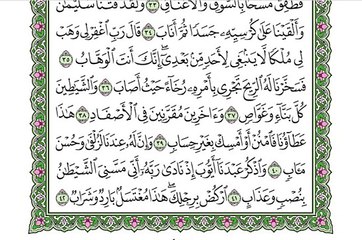 فَطَفِقَ مَسْحًۢا بِٱلسُّوقِ وَٱلْأَعْنَاقِ ٣٣ وَلَقَدْ فَتَنَّا سُلَيْمَٰنَ
وَأَلْقَيْنَا عَلَىٰ كُرْسِيِّهِۦ جَسَدًا ثُمَّ أَنَابَ ٣٤ قَالَ رَبِّ ٱغْفِرْ لِى وَهَبْ
لِى مُلْكًا لَّا يَنۢبَغِى لِأَحَدٍ مِّنۢ بَعْدِىٓ إِنَّكَ أَنتَ ٱلْوَهَّابُ ٣٥
فَسَخَّرْنَا لَهُ ٱلرِّيحَ تَجْرِى بِأَمْرِهِۦ رُخَآءً حَيْثُ أَصَابَ ٣٦ وَٱلشَّيَٰطِينَ
كُلَّ بَنَّآءٍ وَغَوَّاصٍ ٣٧ وَءَاخَرِينَ مُقَرَّنِينَ فِى ٱلْأَصْفَادِ ٣٨ هَٰذَا
عَطَآؤُنَا فَٱمْنُنْ أَوْ أَمْسِكْ بِغَيْرِ حِسَابٍ ٣٩ وَإِنَّ لَهُۥ عِندَنَا لَزُلْفَىٰ وَحُسْنَ
مَـَٔابٍ ٤٠ وَٱذْكُرْ عَبْدَنَآ أَيُّوبَ إِذْ نَادَىٰ رَبَّهُۥٓ أَنِّى مَسَّنِىَ ٱلشَّيْطَٰنُ
بِنُصْبٍ وَعَذَابٍ ٤١ ٱرْكُضْ بِرِجْلِكَ هَٰذَا مُغْتَسَلٌۢ بَارِدٌ وَشَرَابٌ ٤٢